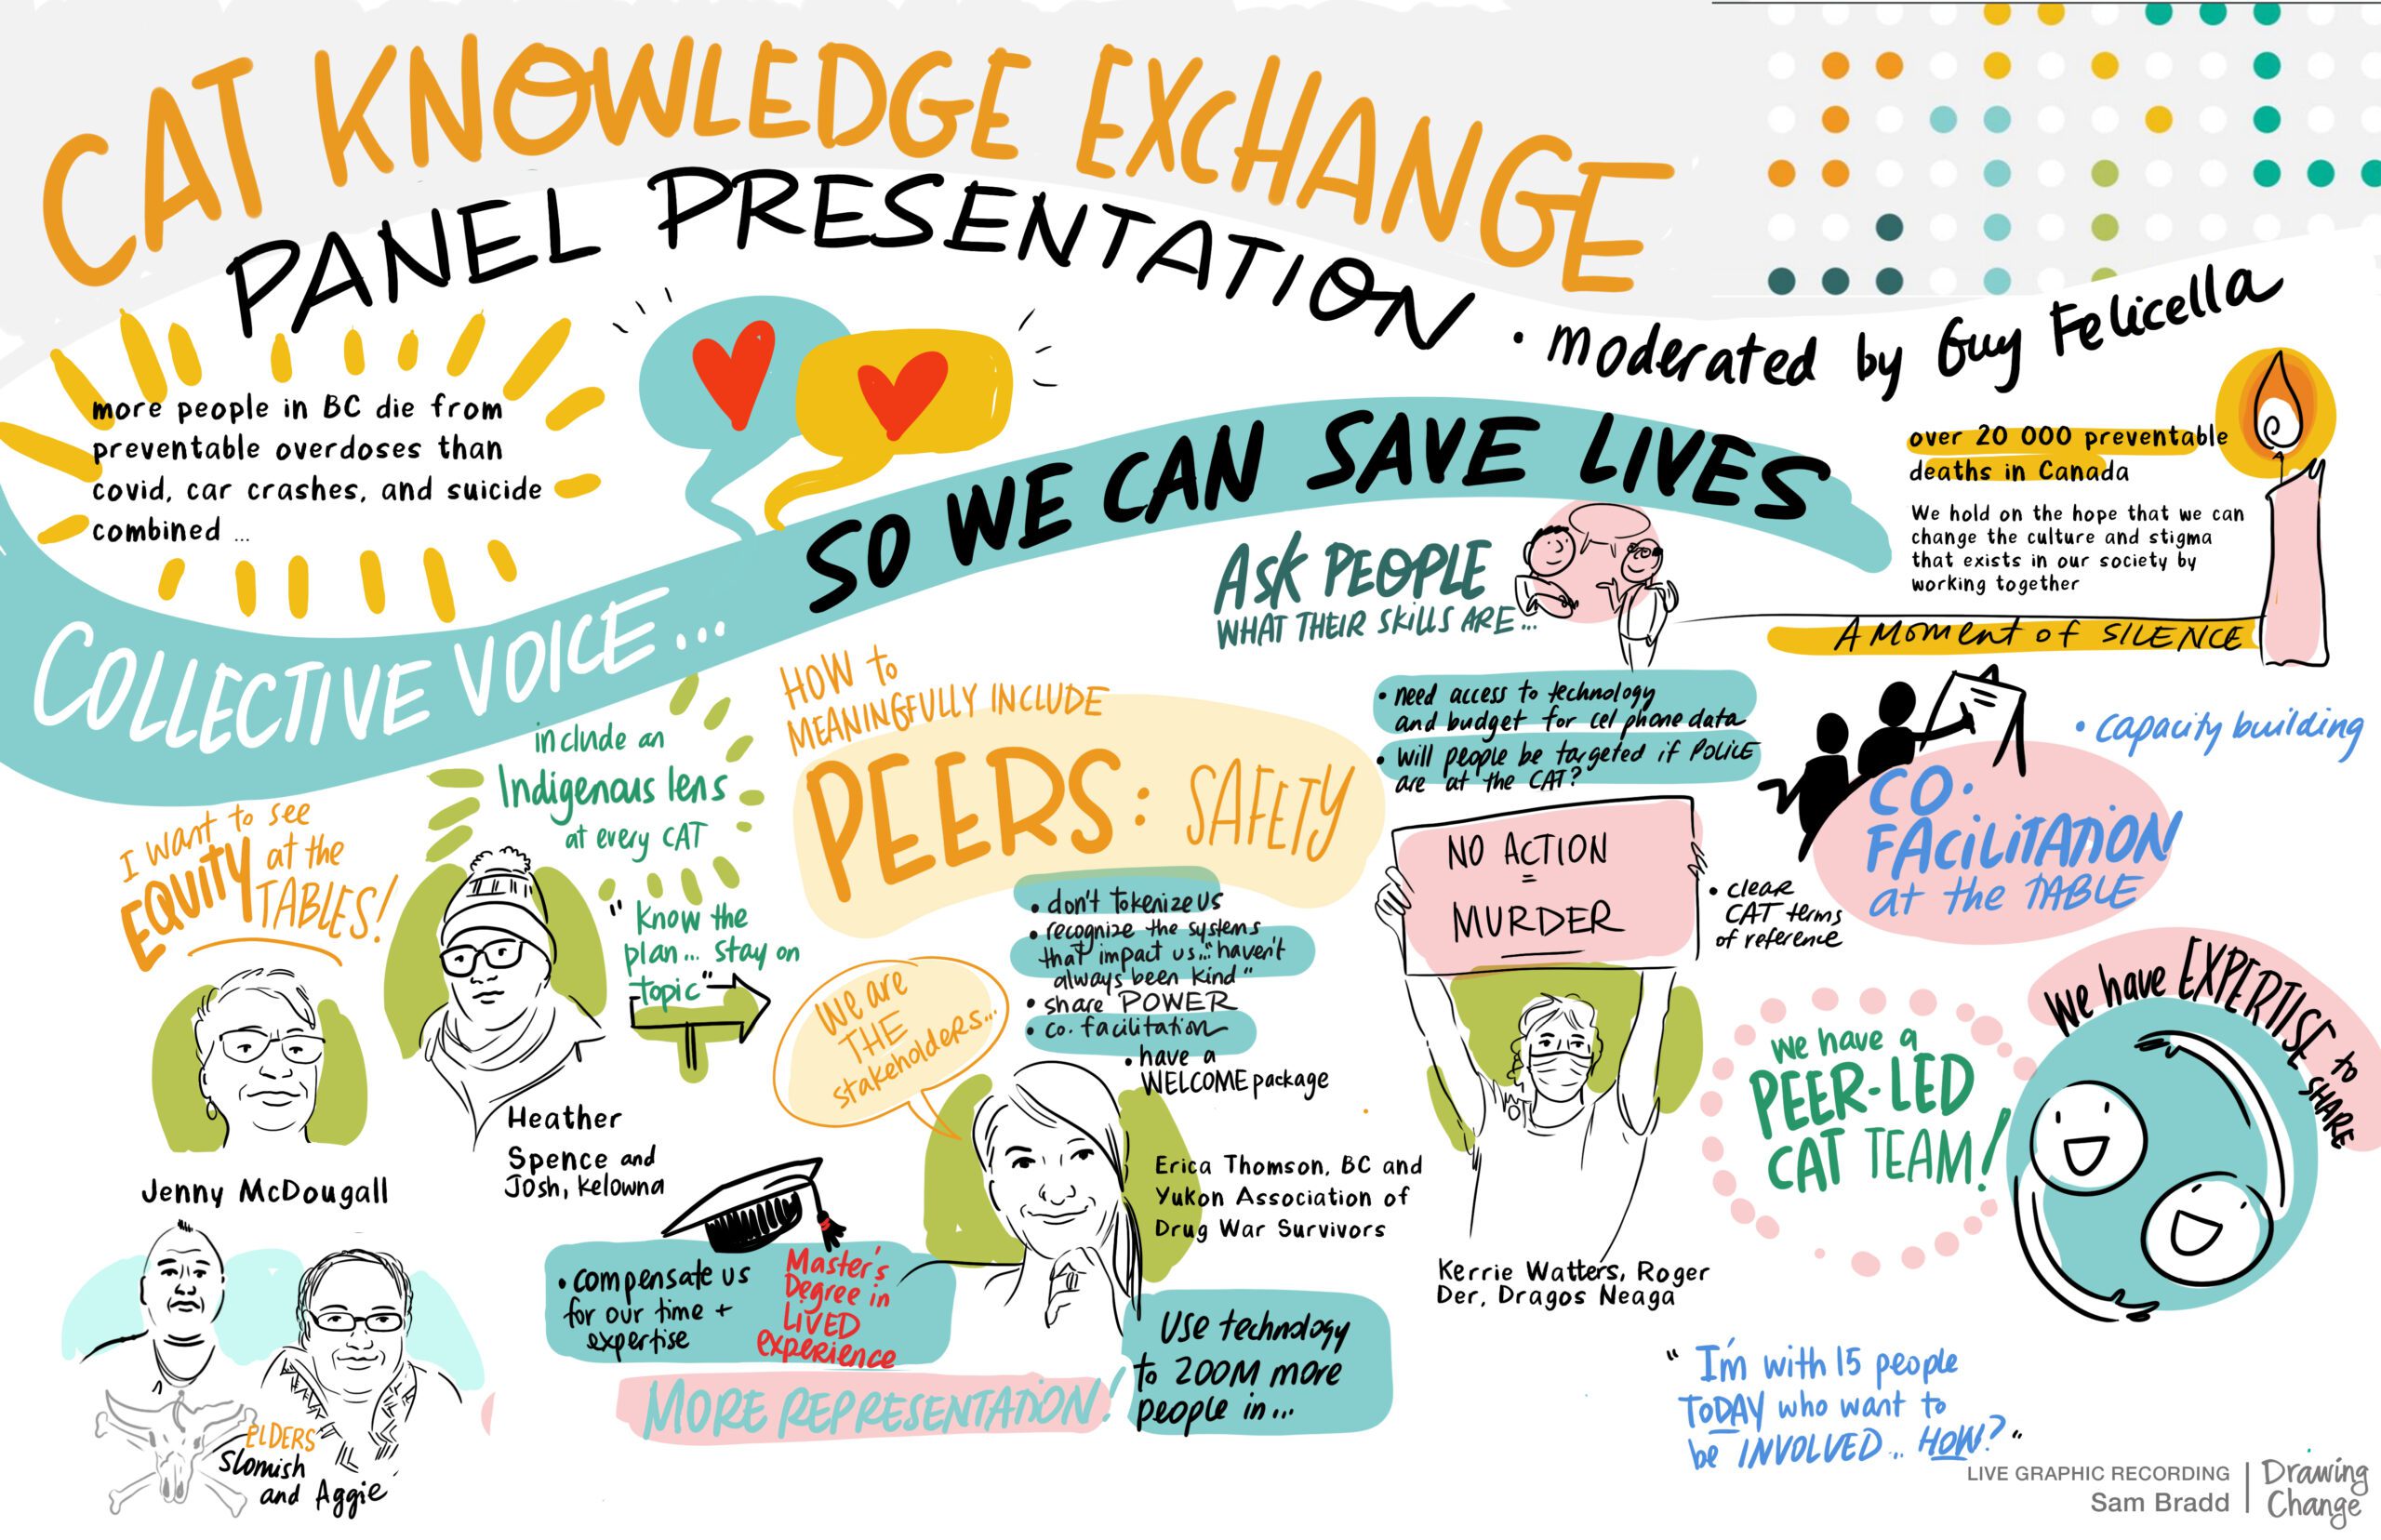 CAT KNOWLEDGE EXCHANGE
PANEL PRESENTATION
• moderated by Guy Felicella
more people in BC die from
preventable overdoses than
covid, car crashes, and suicide
combined ...
COLLECTIVE VOICE...
SO WE CAN SAVE LIVES
over 20 000 preventable
deaths in Canada
We hold on the hope that we can
change the culture and stigma
that exists in our society by
working together
A MOMENT OF SILENCE
ASK PEOPLE
WHAT THEIR SKILLS ARE...
I WANT to see
EQUITY at the
TABLES!
Jenny McDougall
include an
Indigenous lens
at every CAT
"Know the
plan... stay on
topic"
Heather
Spence and
Josh, Kelowna
ELDERS
Slomish
and Aggie
HOW to
MEANINGFULLY INCLUDE
PEERS: SAFETY
• don't tokenize us
• recognize the systems
that impact us... "haven't
always been kind"
• share POWER
• co. facilitation
• have a
WELCOME package
We are
THE
stakeholders...
Erica Thomson, BC and
Yukon Association of
Drug War Survivors
• compensate us
for our time +
expertise
Master's
Degree in
LIVED
experience
MORE REPRESENTATION!
Use technology
to ZOOM more
people in...
• need access to technology
and budget for cel phone data
• will people be targeted if POLICE
are at the CAT?
NO ACTION
=
MURDER
• clear
CAT terms
of reference
Kerrie Watters, Roger
Der, Dragos Neaga
• capacity building
CO.
FACILITATION
at the TABLE
We have a
PEER-LED
CAT TEAM!
We have EXPERTISE to SHARE
"I'm with 15 people
TODAY who want to
be INVOLVED... HOW?"
LIVE GRAPHIC RECORDING
Sam Bradd
Drawing
Change